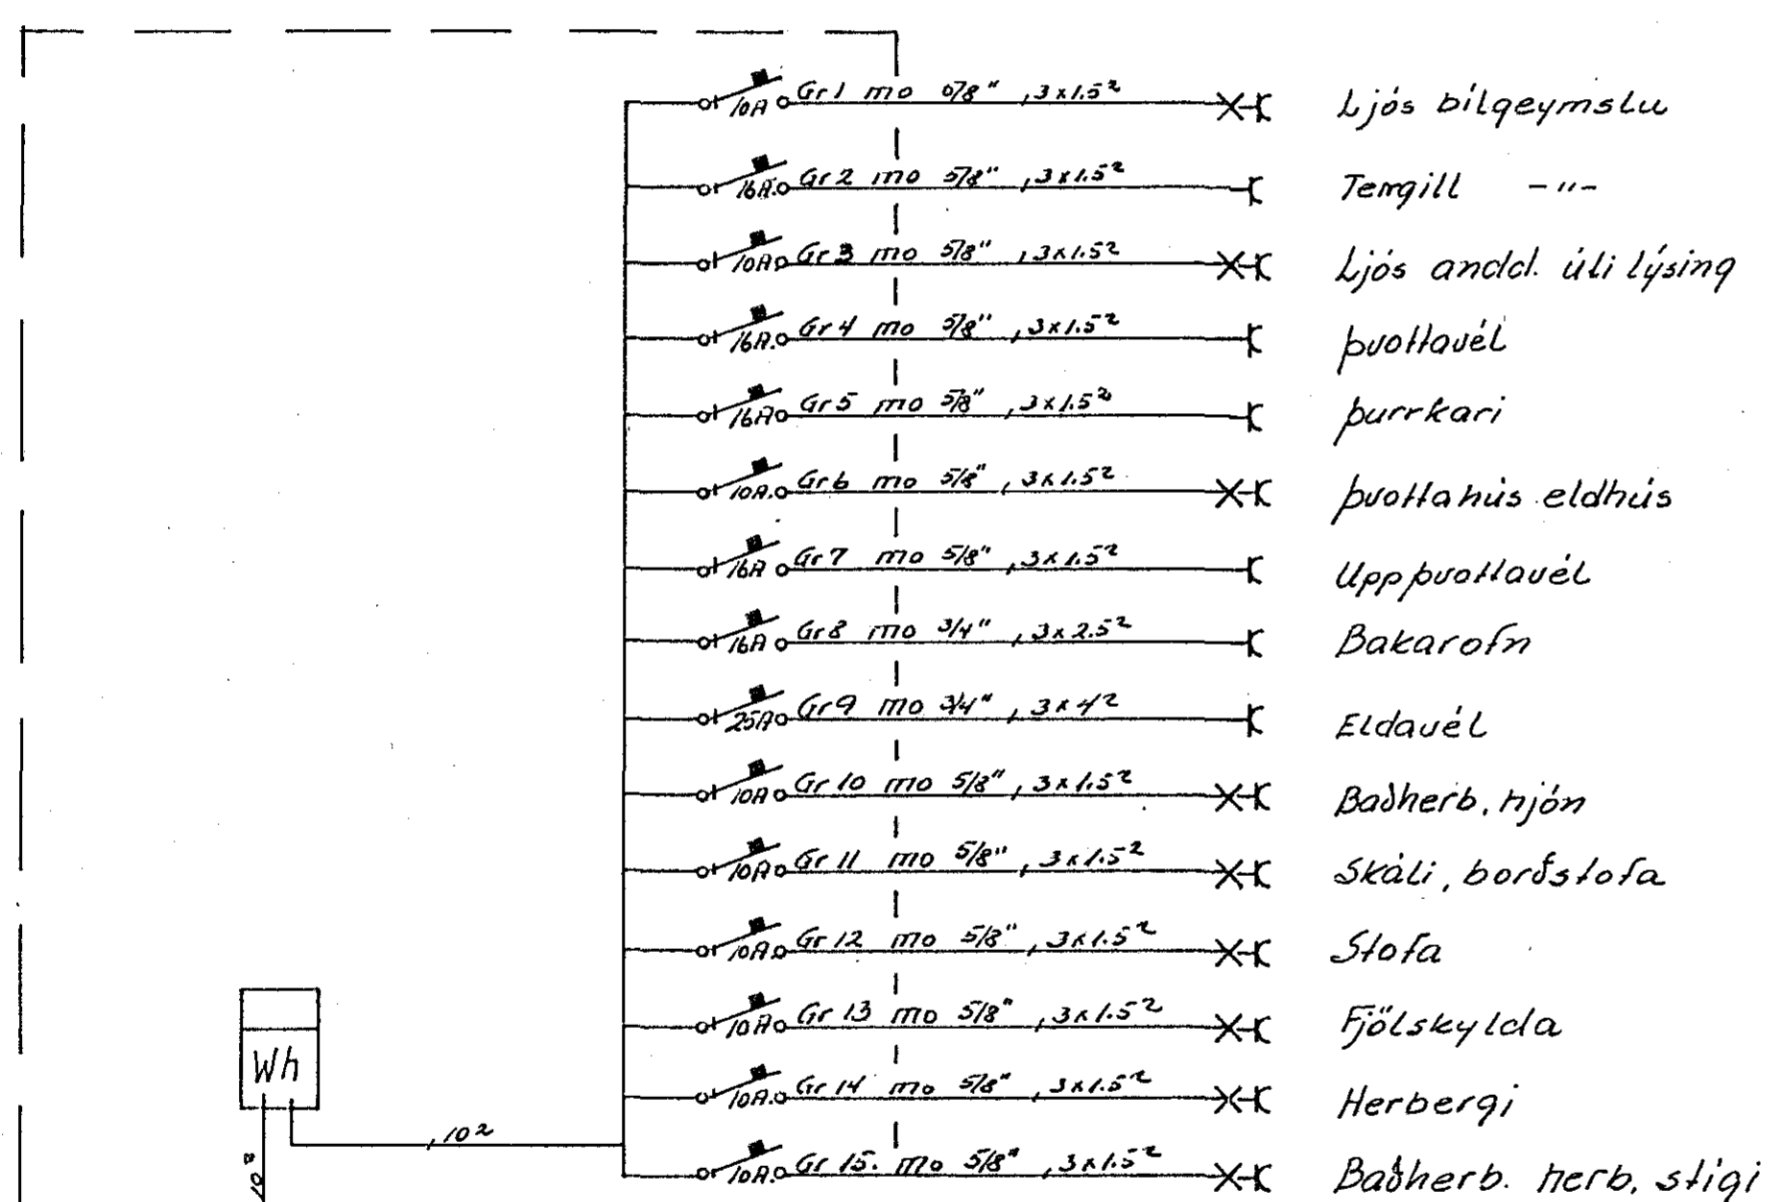 10A Gr 1 mo 5/8" , 3x1.5² Ljós bílgeymslu
16A. Gr 2 mo 5/8" , 3x1.5² Tengill -"-
10A Gr 3 mo 5/8" , 3x1.5² Ljós andd. úti lýsing
16A. Gr 4 mo 5/8" , 3x1.5² þvottavél
16A Gr 5 mo 5/8" , 3x1.5² þurrkari
10A. Gr 6 mo 5/8" , 3x1.5² þvottahús eldhús
16A Gr 7 mo 5/8" , 3x1.5² Uppþvottavél
16A Gr 8 mo 3/4" , 3x2.5² Bakarofn
25A Gr 9 mo 3/4" , 3x4² Eldavél
10A Gr 10 mo 5/8" , 3x1.5² Baðherb. hjón
10A Gr 11 mo 5/8" , 3x1.5² Skáli, borðstofa
10A Gr 12 mo 5/8" , 3x1.5² Stofa
10A Gr 13 mo 5/8" , 3x1.5² Fjölskylda
Wh
10A. Gr 14 mo 5/8" , 3x1.5² Herbergi
10²
10A. Gr 15. mo 5/8" , 3x1.5² Baðherb. herb. stigi
10²